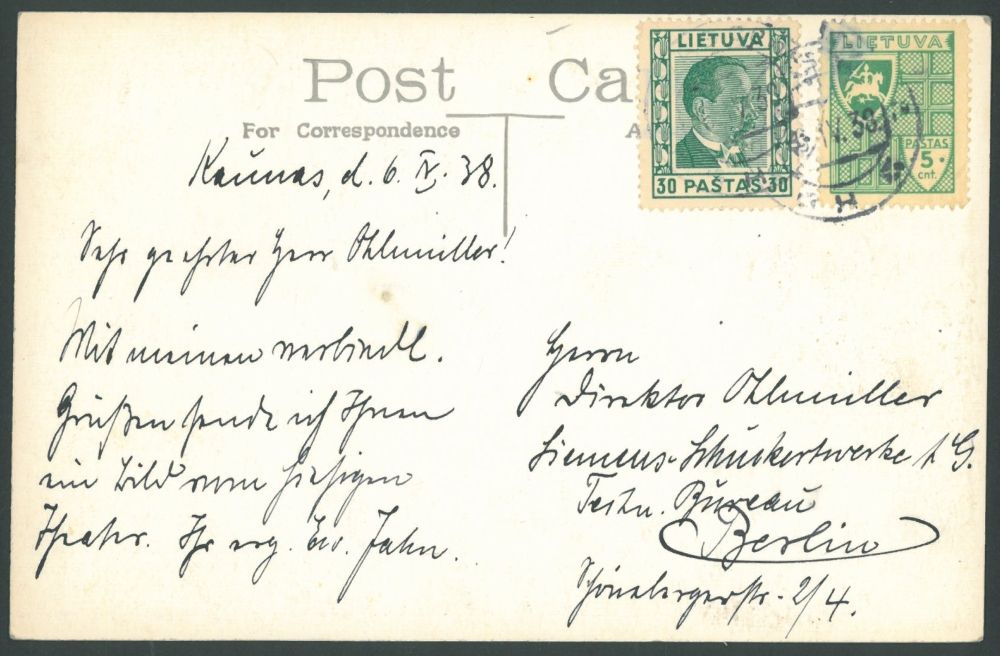 Post Ca
For Correspondence
A
LIETUVA
30 PAŠTAS 30
LIETUVA
PAŠTAS
5
cnt.
38
Kaunas, d. 6. IV. 38.
Sehr geehrter Herr Ohlmüller!
Mit meinen verbindl.
Grüßen sende ich Ihnen
ein Bild vom hiesigen
Theater. Ihr erg. Jahn.
Herrn
Direktor Ohlmüller
Siemens-Schuckertwerke A.G.
Techn. Büreau
Berlin
Schönebergerstr. 2/4.